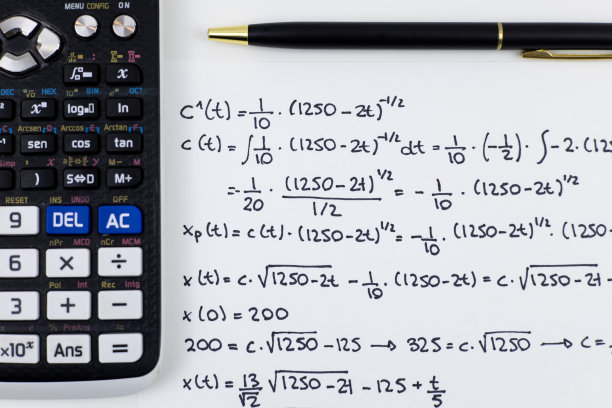 MENU CONFIG ON
x
DEC HEX 10ˣ BIN eˣ OCT
xⁿ log□ ln
Arcsen D Arccos E Arctan F
sen cos tan
)
S⇔D M+
RESET INS UNDO OFF
9 DEL AC
nPr MCD nCr MCM
6 × ÷
Pol Int Rec Intg
3 + −
PreAns
×10ˣ Ans =
C'(t) = 1/10 · (1250 - 2t)^-1/2
c(t) = ∫ 1/10 · (1250 - 2t)^-1/2 dt = 1/10 · (-1/2) · ∫ -2 · (12
= - 1/20 · (1250 - 2t)^1/2 / 1/2 = - 1/10 · (1250 - 2t)^1/2
xp(t) = c(t) · (1250 - 2t)^1/2 = - 1/10 · (1250 - 2t)^1/2 · (1250 -
x(t) = c · √1250 - 2t - 1/10 · (1250 - 2t) = c · √1250 - 2t -
x(0) = 200
200 = c · √1250 - 125 → 325 = c · √1250 → c =
x(t) = 13/√2 √1250 - 2t - 125 + t/5